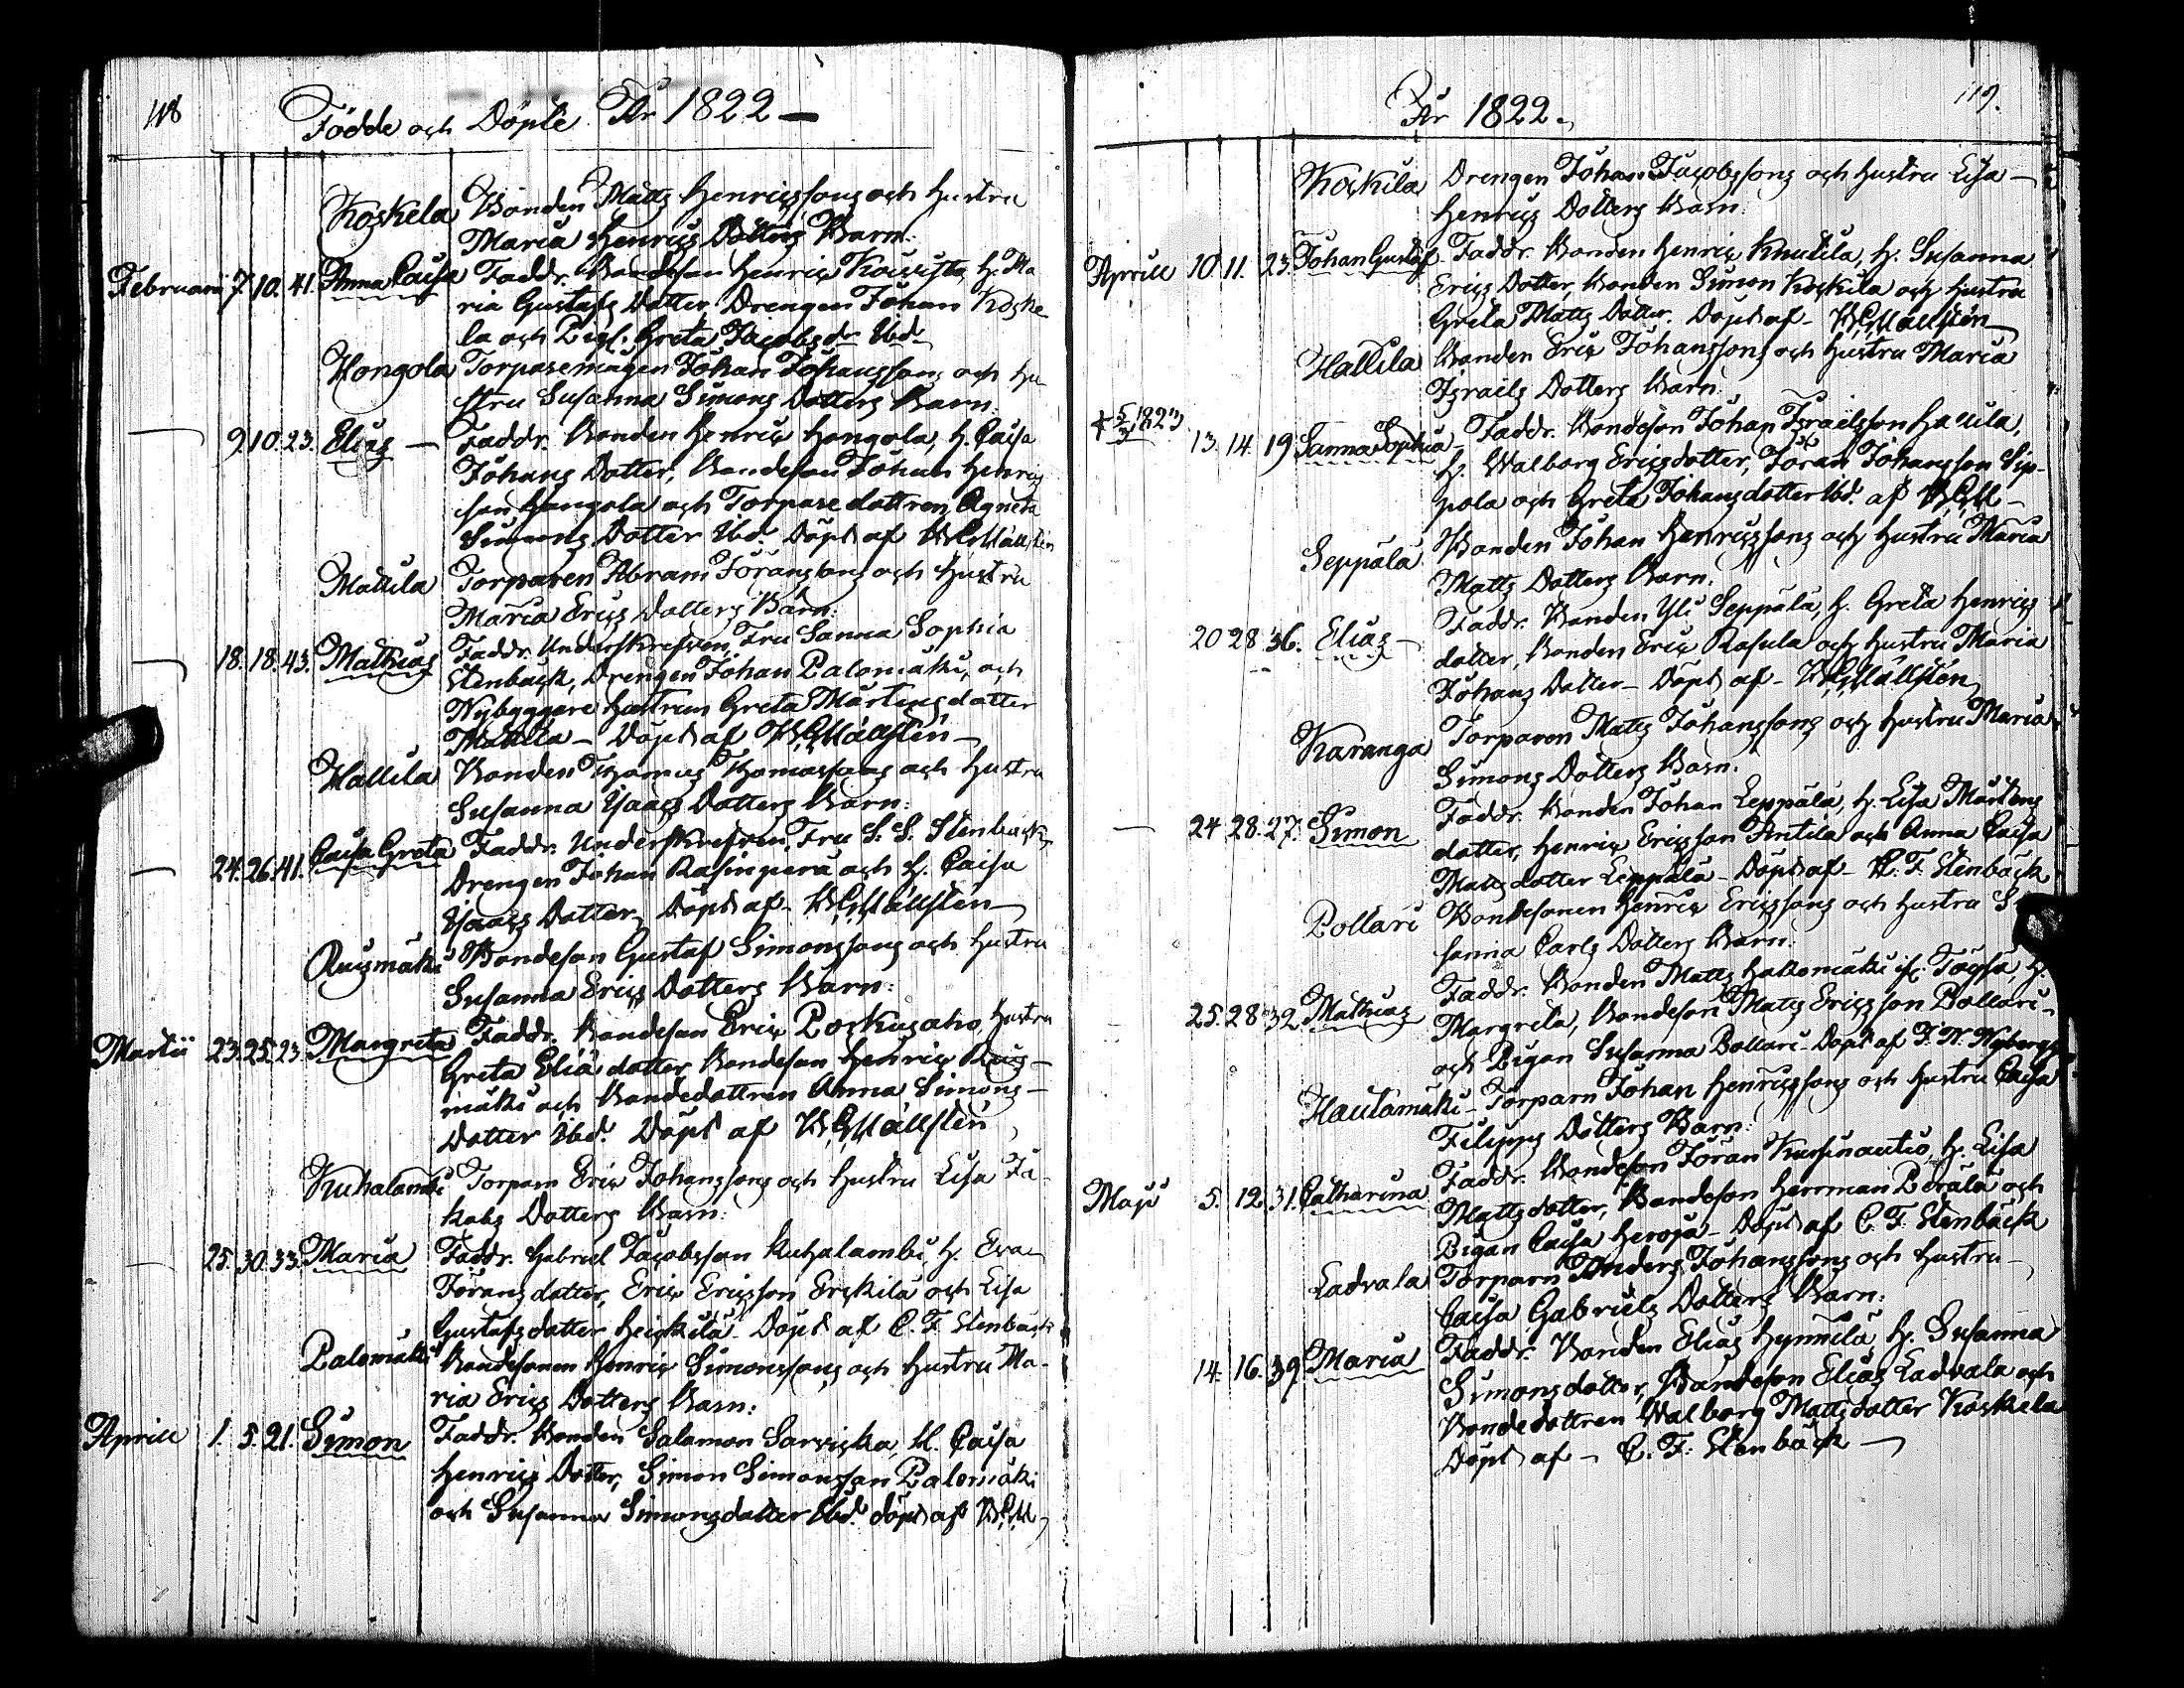 118
Födde och Döpte År 1822 —
Koskela Bonden Matts Henricssons och Hustru
Maria Henrics Dotters Barn.
Februarii 7. 10. 41. Anna Caisa Faddr. Bondeson Henric Koivisto, H. Ma
ria Gustafs Dotter, Drengen Johan Koske
la och Pig. Greta Jacobsdr Ibd.
Hongola Torparemågen Johan Johansson och Hu
stru Susanna Simons Dotters Barn.
— 9. 10. 23. Elias — Faddr. Bonden Henric Hongola, H. Caisa
Johans Dotter, Bondeson Johan Henrics
son Hongola och Torparedottren Agneta
Simons Dotter Ibd. Döpt af
Mattila Torparen Abram Joranssons och Hustru
Maria Erics Dotters Barn.
— 18. 18. 43. Mathias Faddr. Underskrefven, Fru Sanna Sophia
Stenbäck, Drengen Johan Palomäki, och
Nybyggare Hustrun Greta Mårtensdotter
Mattila — Döpt af
Hallila Bonden Thomas Thomassons och Hustru
Susanna Isaacs Dotters Barn.
— 24. 26. 41. Caisa Greta Faddr. Underskrefven, Fru S. S. Stenbäck,
Drengen Johan Rasinperä och H. Caisa
Isaacs Dotter, Döpt af
Ruismäki Bondeson Gustaf Simonssons och Hustru
Susanna Erics Dotters Barn.
Martii 23. 25. 23. Margreta Faddr. Bondeson Eric Porkusaho, Hustru
Greta Eliä dotter, Bondeson Henric Ruis-
mäki och Bondedottren Anna Simons-
Dotter Ibd. Döpt af
Kuhalambi Torparn Eric Johanssons och Hustru Lisa Ja-
kobs Dotters Barn.
— 25. 30. 33. Maria Faddr. Gabriel Jacobsson Kuhalambi, H. Eva
Joransdotter, Eric Ericsson Erkilä och Lisa
Gustafsdotter Heikilä. Döpt af C. F. Stenbäck
Palomäki Bondesonen Henric Simonssons och Hustru Ma-
ria Erics Dotters Barn.
Aprill 1. 5. 21. Simon Faddr. Bonden Salamon Sarvicka, H. Caisa
Henrics Dotter, Simon Simonsson Palomäki
och Susanna Simonsdotter Ibd. döpt af
År 1822.
119.
Koskela Drengen Johan Jacobssons och Hustru Lisa —
Henrics Dotters Barn.
Aprill 10. 11. 23. Johan Gustaf Faddr. Bonden Henric Knuutila, H. Susanna
Erics Dotter, Bonden Simon Koskela och Hustru
Greta Matts Dotter. Döpt af
Hallila Bonden Eric Johanssons och Hustru Maria
Israels Dotters Barn.
1823
13. 14. 19 Sanna Sophia Faddr. Bondeson Johan Israelsson Hallila,
H. Walborg Ericsdotter, Joran Johansson Sip-
pola och Greta Johansdotter Ibd. af
Seppälä Bonden Johan Henricssons och Hustru Maria
Matts Dotters Barn.
20 28 36. Elias — Faddr. Bonden Yli Seppälä, H. Greta Henrics
dotter, Bonden Eric Rasula och Hustru Maria
Johans Dotter — Döpt af
Karanga Torparen Matts Johanssons och Hustru Maria
Simons Dotters Barn.
— 24 28. 27. Simon Faddr. Bonden Johan Leppälä, H. Lisa Mårtens
dotter, Henric Ericsson Antila och Anna Caisa
Mattsdotter Leppälä — Döpt af — C. F. Stenbäck
Pollari Bondesonen Henric Ericssons och Hustru
sanna Carls Dotters Barn.
25. 28. 32. Mathias Faddr. Bonden Matts Hakomäki H.
Margreta, Bondeson Matts Ericsson Pollari —
och Pigan Susanna Pollari. Döpt af Nyberg
Hautamäki Torparn Johan Henricssons och Hustru Caisa
Filipps Dotters Barn.
Maji 5. 12. 31. Catharina Faddr. Bondeson Joran Kursinautio, H. Lisa
Mattsdotter, Bondeson Herrman Peräla och
Pigan Caisa Heroja — Döpt af C. F. Stenbäck
Ladvala Torparn Anders Johanssons och Hustru —
Caisa Gabriels Dotters Barn.
14. 16. 39. Maria Faddr. Bonden Elias Hynnilä, H. Susanna
Simonsdotter, Bondeson Elias Ladvala och
Bondedottren Walborg Mattsdotter Koskela
Döpt af — C. F. Stenbäck —